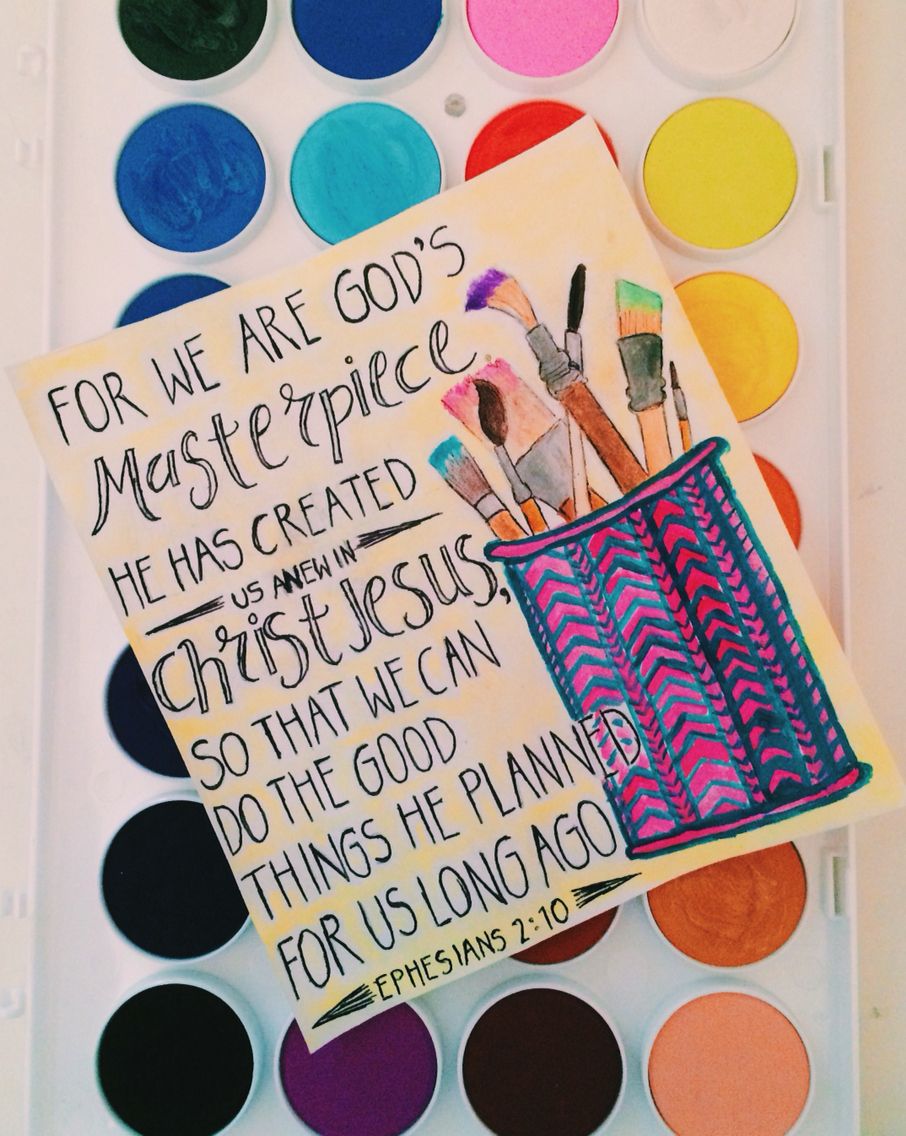 FOR WE ARE GOD'S
Masterpiece.
HE HAS CREATED
US ANEW IN
Christ Jesus,
SO THAT WE CAN
DO THE GOOD
THINGS HE PLANNED
FOR US LONG AGO
EPHESIANS 2:10